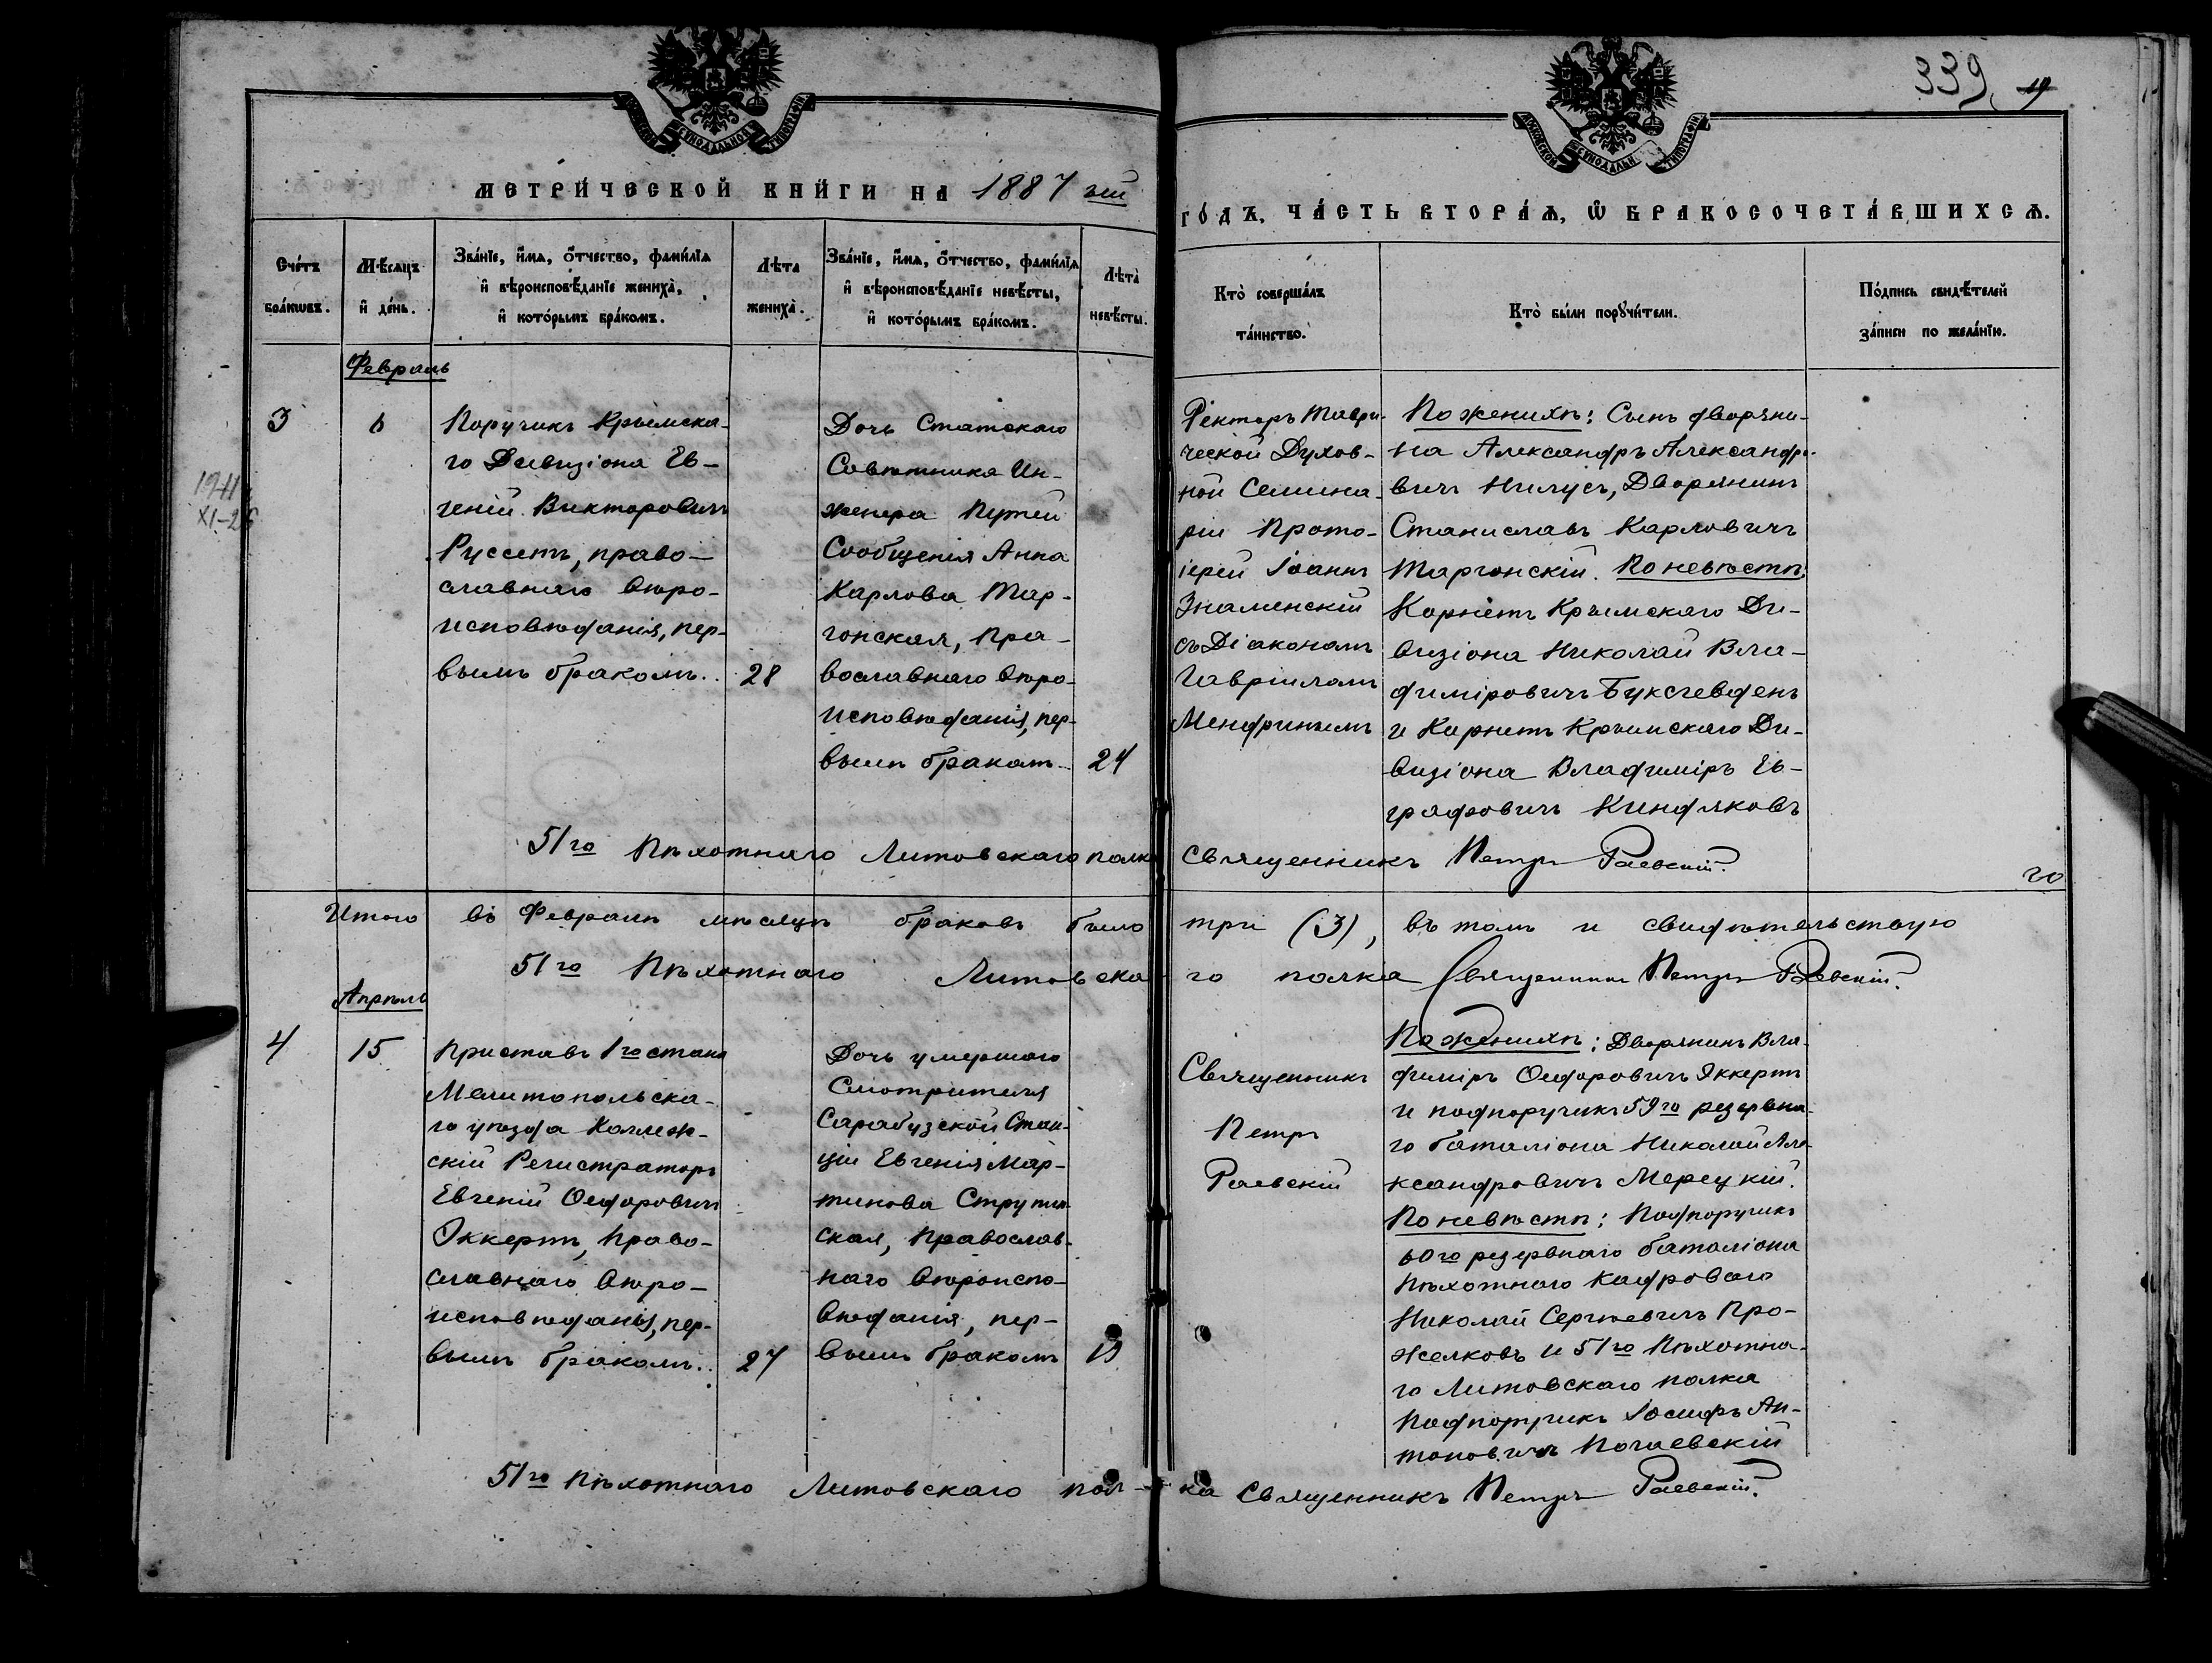 339 19
МОСКОВСКОЙ СѴНОДАЛЬНОЙ ТИПОГРАФІИ
МОСКОВСКОЙ СѴНОДАЛЬН ТИПОГРАФІИ
МЕТРИ́ЧЕСКОЙ КНИ́ГИ НА 1887 ый
ГО́ДЪ, ЧА́СТЬ ВТОРА́Ѧ, Ѽ БРАКОСОЧЕТА́ВШИХСѦ.
Сче́тъ
бра́кѡвъ.
Мѣ́сяцъ
и҆ де́нь.
Зва́нїе, и҆́мѧ, ѻ҆́тчество, фами́лїѧ
и҆ вѣроисповѣ́данїе жениха̀,
и҆ кото́рымъ бра́комъ.
Лѣта
жениха̀.
Зва́нїе, и҆́мѧ, ѻ҆́тчество, фами́лїѧ
и҆ вѣроисповѣ́данїе невѣ́сты,
и҆ кото́рымъ бра́комъ.
Лѣта̀
невѣ́сты.
Кто̀ соверша́лъ
та́инство.
Кто̀ бы́ли порꙋчи́тели.
По́дпись свидѣ́телей
за́писи по жела́нїю.
Февраль
3
6
Поручикъ Крымска-
го Дивизіона Ев-
геній Викторовичъ
Руссетъ, право-
славнаго вѣро-
исповѣданія, пер-
вымъ бракомъ..
28
Дочь Статскаго
Совѣтника Ин-
женера Путей
Сообщенія Анна
Карлова Мар-
гонская, Пра-
вославнаго вѣро-
исповѣданія, пер-
вымъ бракомъ
24
Ректоръ Таври-
ческой Духов-
ной Семина-
ріи Прото-
іерей Іоаннъ
Знаменскій
съ Діакономъ
Гавріиломъ
По женихѣ: Сынъ дворяни-
на Александръ Александро-
вичъ Нилусъ, Дворянинъ
Станиславъ Карловичъ
Маргонскій. По невѣстѣ:
Корнетъ Крымскаго Ди-
визіона Николай Вла-
диміровичъ Буксгевденъ
и Корнетъ Крымскаго Ди-
визіона Владиміръ Ев-
графовичъ Киндяковъ
51го Пѣхотнаго Литовскаго полка Священникъ Петръ Раевскій.
Итого въ Февралѣ мѣсяцѣ браковъ было три (3), въ томъ и свидѣтельствую
51го Пѣхотнаго Литовскаго полка Священникъ Петръ Раевскій.
Апрѣль
4
15
Приставъ 1го стана
Мелитопольска-
го уѣзда Коллеж-
скій Регистраторъ
Евгеній Ѳедоровичъ
Эккертъ, Право-
славнаго вѣро-
исповѣданія, пер-
вымъ бракомъ..
27
Дочь умершаго
Смотрителя
Сарабузской Стан-
ціи Евгенія Мар-
тинова Струпин-
ская, Православ-
наго вѣроиспо-
вѣданія, пер-
вымъ бракомъ
19
Священникъ
Петръ
Раевскій
По женихѣ: Дворянинъ Вла-
диміръ Ѳедоровичъ Эккертъ
и подпоручикъ 59го резервна-
го баталіона Николай Але-
ксандровичъ Мерецкій.
По невѣстѣ: Подпоручикъ
60го резервнаго баталіона
Пѣхотнаго Кадроваго
Николай Сергѣевичъ Про-
желковъ и 51го Пѣхотна-
го Литовскаго полка
Подпоручикъ Іосифъ Ан-
тоновичъ Почаевскій
51го Пѣхотнаго Литовскаго пол-ка Священникъ Петръ Раевскій.